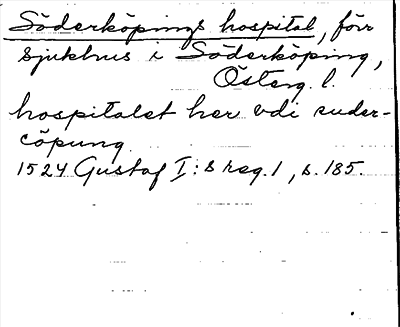 Söderköpings hospital, förr
sjukhus i Söderköping,
Österg. l.
hospitalet her vdi suder-
cöpung
1524 Gustaf I:s reg. 1, s. 185.